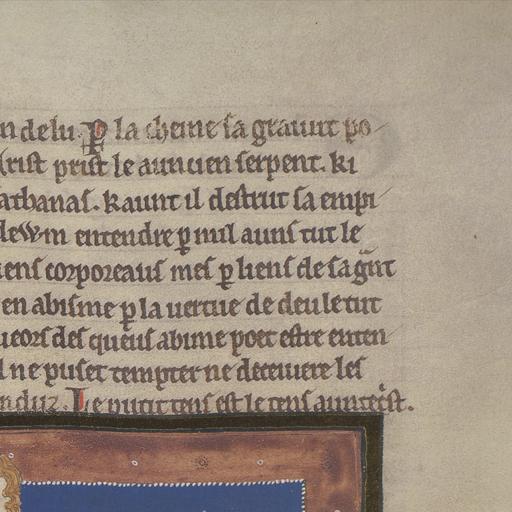 n de lu. P la cheine sa grauirt po
rist prist le auncien serpent. ki
athanas. kaunt il destrut sa empi
deWm entendre p mil auns tut le
iens corporeaus mes p liens de sa gnt
en abisme p la uertue de deu le tut
ueors des queus abime poet estre enten
l ne puset tempter ne deceiuere les
nduz. Le putit tens est le tens auntecst.